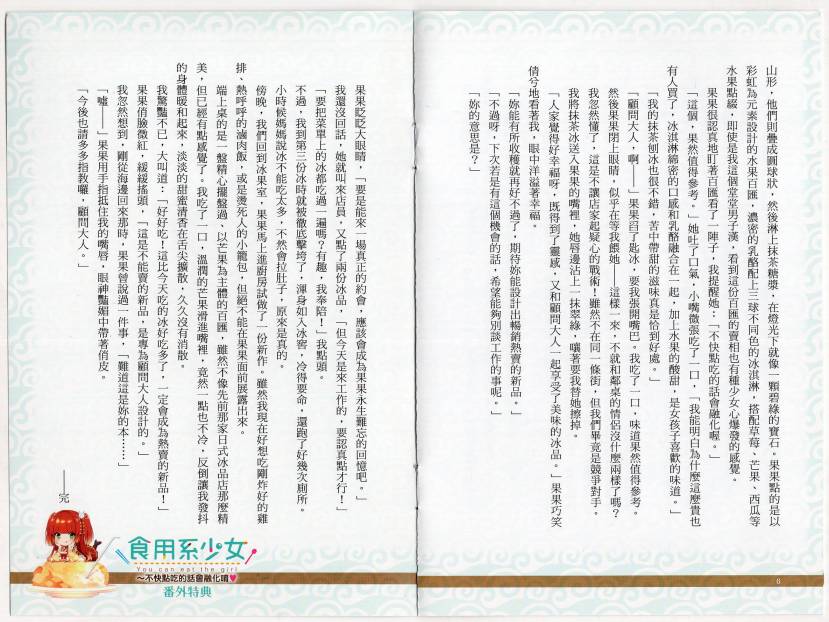 山形，他們則疊成圓球狀，然後淋上抹茶糖漿，在燈光下就像一顆碧綠的寶石。果果點的是以
彩虹為元素設計的水果百匯，濃密的乳酪配上三球不同色的冰淇淋，搭配草莓、芒果、西瓜等
水果點綴，即使是我這個堂堂男子漢，看到這份百匯的賣相也有種少女心爆發的感覺。
果果很認真地盯著百匯看了一陣子，我提醒她：「不快點吃的話會融化喔。」
「這個，果然值得參考。」她吐了口氣，小嘴微張吃了一口，「我能明白為什麼這麼貴也
有人買了，冰淇淋綿密的口感和乳酪融合在一起，加上水果的酸甜，是女孩子喜歡的味道。」
「我的抹茶刨冰也很不錯，苦中帶甜的滋味真是恰到好處。」
「顧問大人，啊——」果果舀了匙冰，要我張開嘴巴。我吃了一口，味道果然值得參考。
然後果果閉上眼睛，似乎在等我餵她——這樣一來，不就和鄰桌的情侶沒什麼兩樣了嗎？
我忽然懂了，這是不讓店家起疑心的戰術！雖然不在同一條街，但我們畢竟是競爭對手。
我將抹茶冰送入果果的嘴裡，她唇邊沾上一抹翠綠，嚷著要我替她擦掉。
「人家覺得好幸福呀，既得到了靈感，又和顧問大人一起享受了美味的冰品。」果果巧笑
倩兮地看著我，眼中洋溢著幸福。
「妳能有所收穫就再好不過了，期待妳能設計出暢銷熱賣的新品。」
「不過呀，下次若是有這個機會的話，希望能夠別談工作的事呢。」
「妳的意思是？」
6
果果眨眨大眼睛，「要是能來一場真正的約會，應該會成為果果永生難忘的回憶吧。」
我還沒回話，她就叫來店員，又點了兩份冰品，「但今天是來工作的，要認真點才行！」
「要把菜單上的冰都吃過一遍嗎？有趣，我奉陪！」我點頭。
不過，我到第三份冰時就被徹底擊垮了，渾身如入冰窖，冷得要命，還跑了好幾次廁所。
小時候媽媽說冰不能吃太多，不然會拉肚子，原來是真的。
傍晚，我們回到冰果室，果果馬上進廚房試做了一份新作。雖然我現在好想吃剛炸好的雞
排、熱呼呼的滷肉飯，或是燙死人的小籠包，但絕不能在果果面前展露出來。
端上桌的是一盤精心擺盤過、以芒果為主體的百匯，雖然不像先前那家日式冰品店那麼精
美，但已經有點感覺了。我吃了一口，溫潤的芒果滑進嘴裡，竟然一點也不冷，反倒讓我發抖
的身體暖和起來，淡淡的甜蜜清香在舌尖擴散，久久沒有消散。
我驚豔不已，大叫道：「好好吃！這比今天吃的冰好吃多了，一定會成為熱賣的新品！」
果果俏臉微紅，緩緩搖頭，「這是不能賣的新品，是專為顧問大人設計的。」
我忽然想到，剛從海邊回來那時，果果曾說過一件事，「難道這是妳的本……」
「噓——」果果用手指抵住我的嘴唇，眼神豔媚中帶著俏皮。
「今後也請多多指教囉，顧問大人。」
——完
食用系少女
You can eat the girl
～不快點吃的話會融化唷♥
番外特典